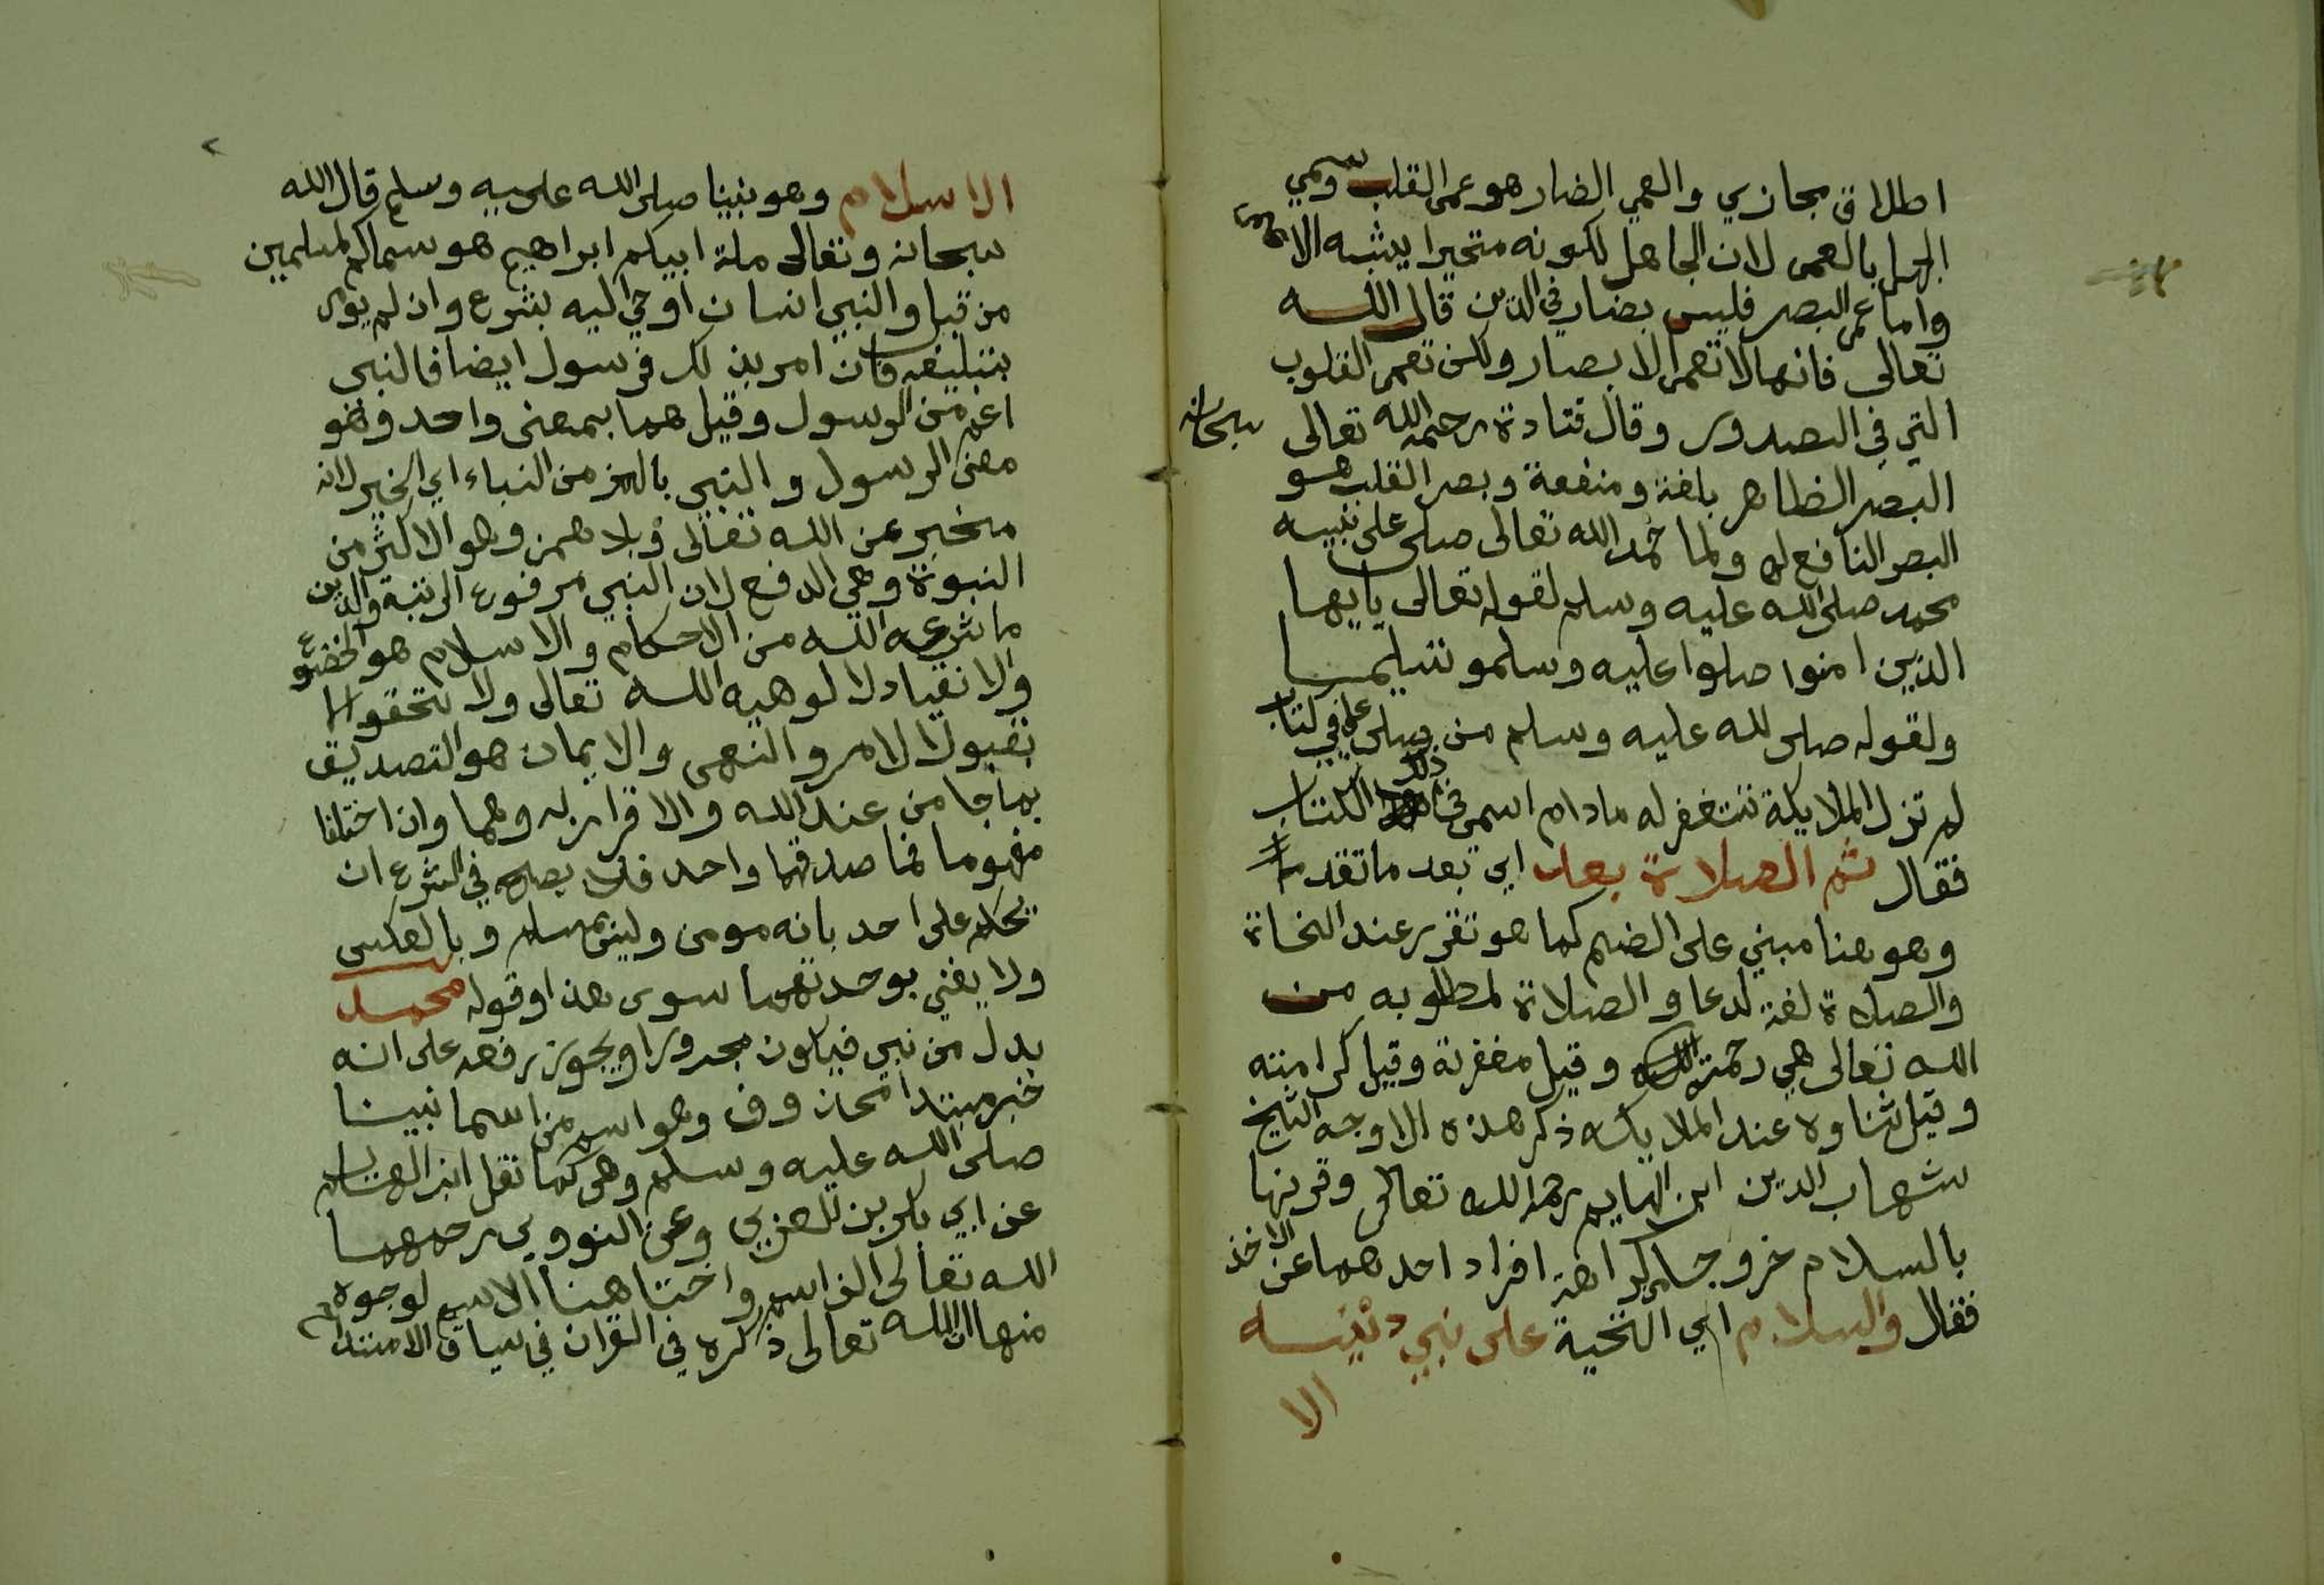 اطلاق مجازي والعمي الضار هو عمى القلب وسمي
الجهل بالعمى لان الجاهل لكونه متحيرا يشبه الاعمى
واما عمى البصر فليس بضار في الدين قال الله
تعالى فانها لا تعمى الابصار ولكن تعمى القلوب
التي في الصدور وقال قتادة رحمه الله تعالى سبحانه
البصر الظاهر بلغة ومنفعة وبصر القلب هو
البصر النافع له ولما حمد الله تعالى صلى على نبيه
محمد صلى الله عليه وسلم لقوله تعالى يايها
الذين امنوا صلوا عليه وسلمو تسليما
ولقوله صلى لله عليه وسلم من صلى علي في كتاب
لم تزل الملايكة تستغفر له مادام اسمي في ذلك الكتاب
فقال ثم الصلاة بعد اي بعد ما تقدم
وهو هنا مبني على الضم كما هو تقرر عند النحاة
والصلاة لغة لدعا والصلاة لمطلوبه من
الله تعالى هي رحمته وقيل مغفرته وقيل كرامته
وقيل ثناوه عند الملايكه ذكر هذه الاوجه الشيخ
شهاب الدين ابن الهايم رحمه الله تعالى وقرنها
بالسلام خروجا من كراهة افراد احدهما عن الاخر
فقال والسلام اي التحية على نبي دينه
الا
٢
الاسلام وهو نبينا صلى الله عليه وسلم قال الله
سبحانه وتعالى ملة ابيكم ابراهيم هو سماكم لمسلمين
من قبل والنبي انسان اوحي اليه بشرع وان لم يومر
بتبليغه فان امر بذلك فرسول ايضا فالنبي
اعم من الرسول وقيل هما بمعنى واحد وهو
معنى الرسول والنبي بالهمز من النباء اي الخبر لانه
مخبر عن الله تعالى وبلا همز وهو الاكثر من
النبوة وهي الرفع لان النبي مرفوع الرتبة والدين
ما شرعه الله من الاحكام والاسلام هو الخضوع
والانقياد لالوهيه الله تعالى ولا يتحقق الا
بقبول الامر والنهى والايمان هو التصديق
بما جا من عند الله والاقرار به وهما وان اختلفا
مفهوما فما صدقهما واحد فلا يصح في الشرع ان
يحكم على احد بانه مومن وليس بمسلم وبالعكس
ولا يعني بوحدتهما سوى هذا وقوله محمد
بدل من نبي فيكون مجرورا ويجوز رفعه على انه
خبر مبتدا محذوف وهو اسم من اسما نبينا
صلى الله عليه وسلم وهى كما نقل ابن الهايم
عن ابي بكر بن العربي وعن النووي رحمهما
الله تعالى الف اسم واختا هنا الاسم لوجوه
منها ان الله تعالى ذكره في القران في سياق الامتنان